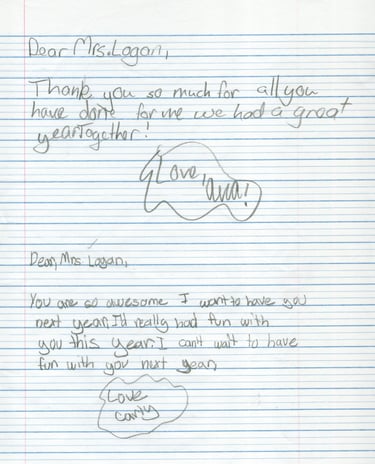 Dear Mrs. Logan,
Thank you so much for all you
have done for me we had a great
year Together!
Love,
ana!
Dear, Mrs Logan,
You are so awesome I want to have you
next year, I'd really had fun with
you this year. I can't wait to have
fun with you next year,
Love
carly